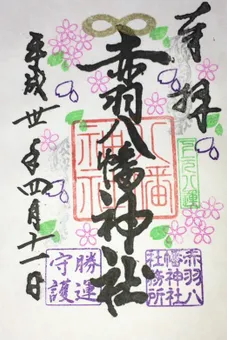 奉拝
赤羽八幡神社
平成卅一年四月十一日
八幡
神社
勝運
守護
赤羽八
幡神社
社務所